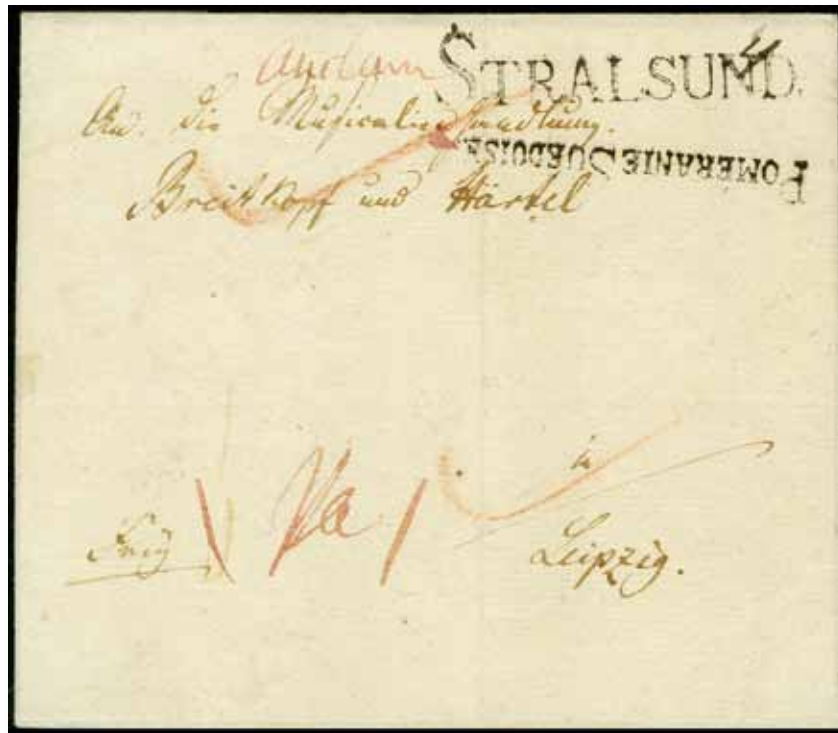 Anclam
STRALSUND.
An die Musicalienhandlung.
POMERANIE SUEDOISE
Breitkopf und Härtel
in
frey
Leipzig.